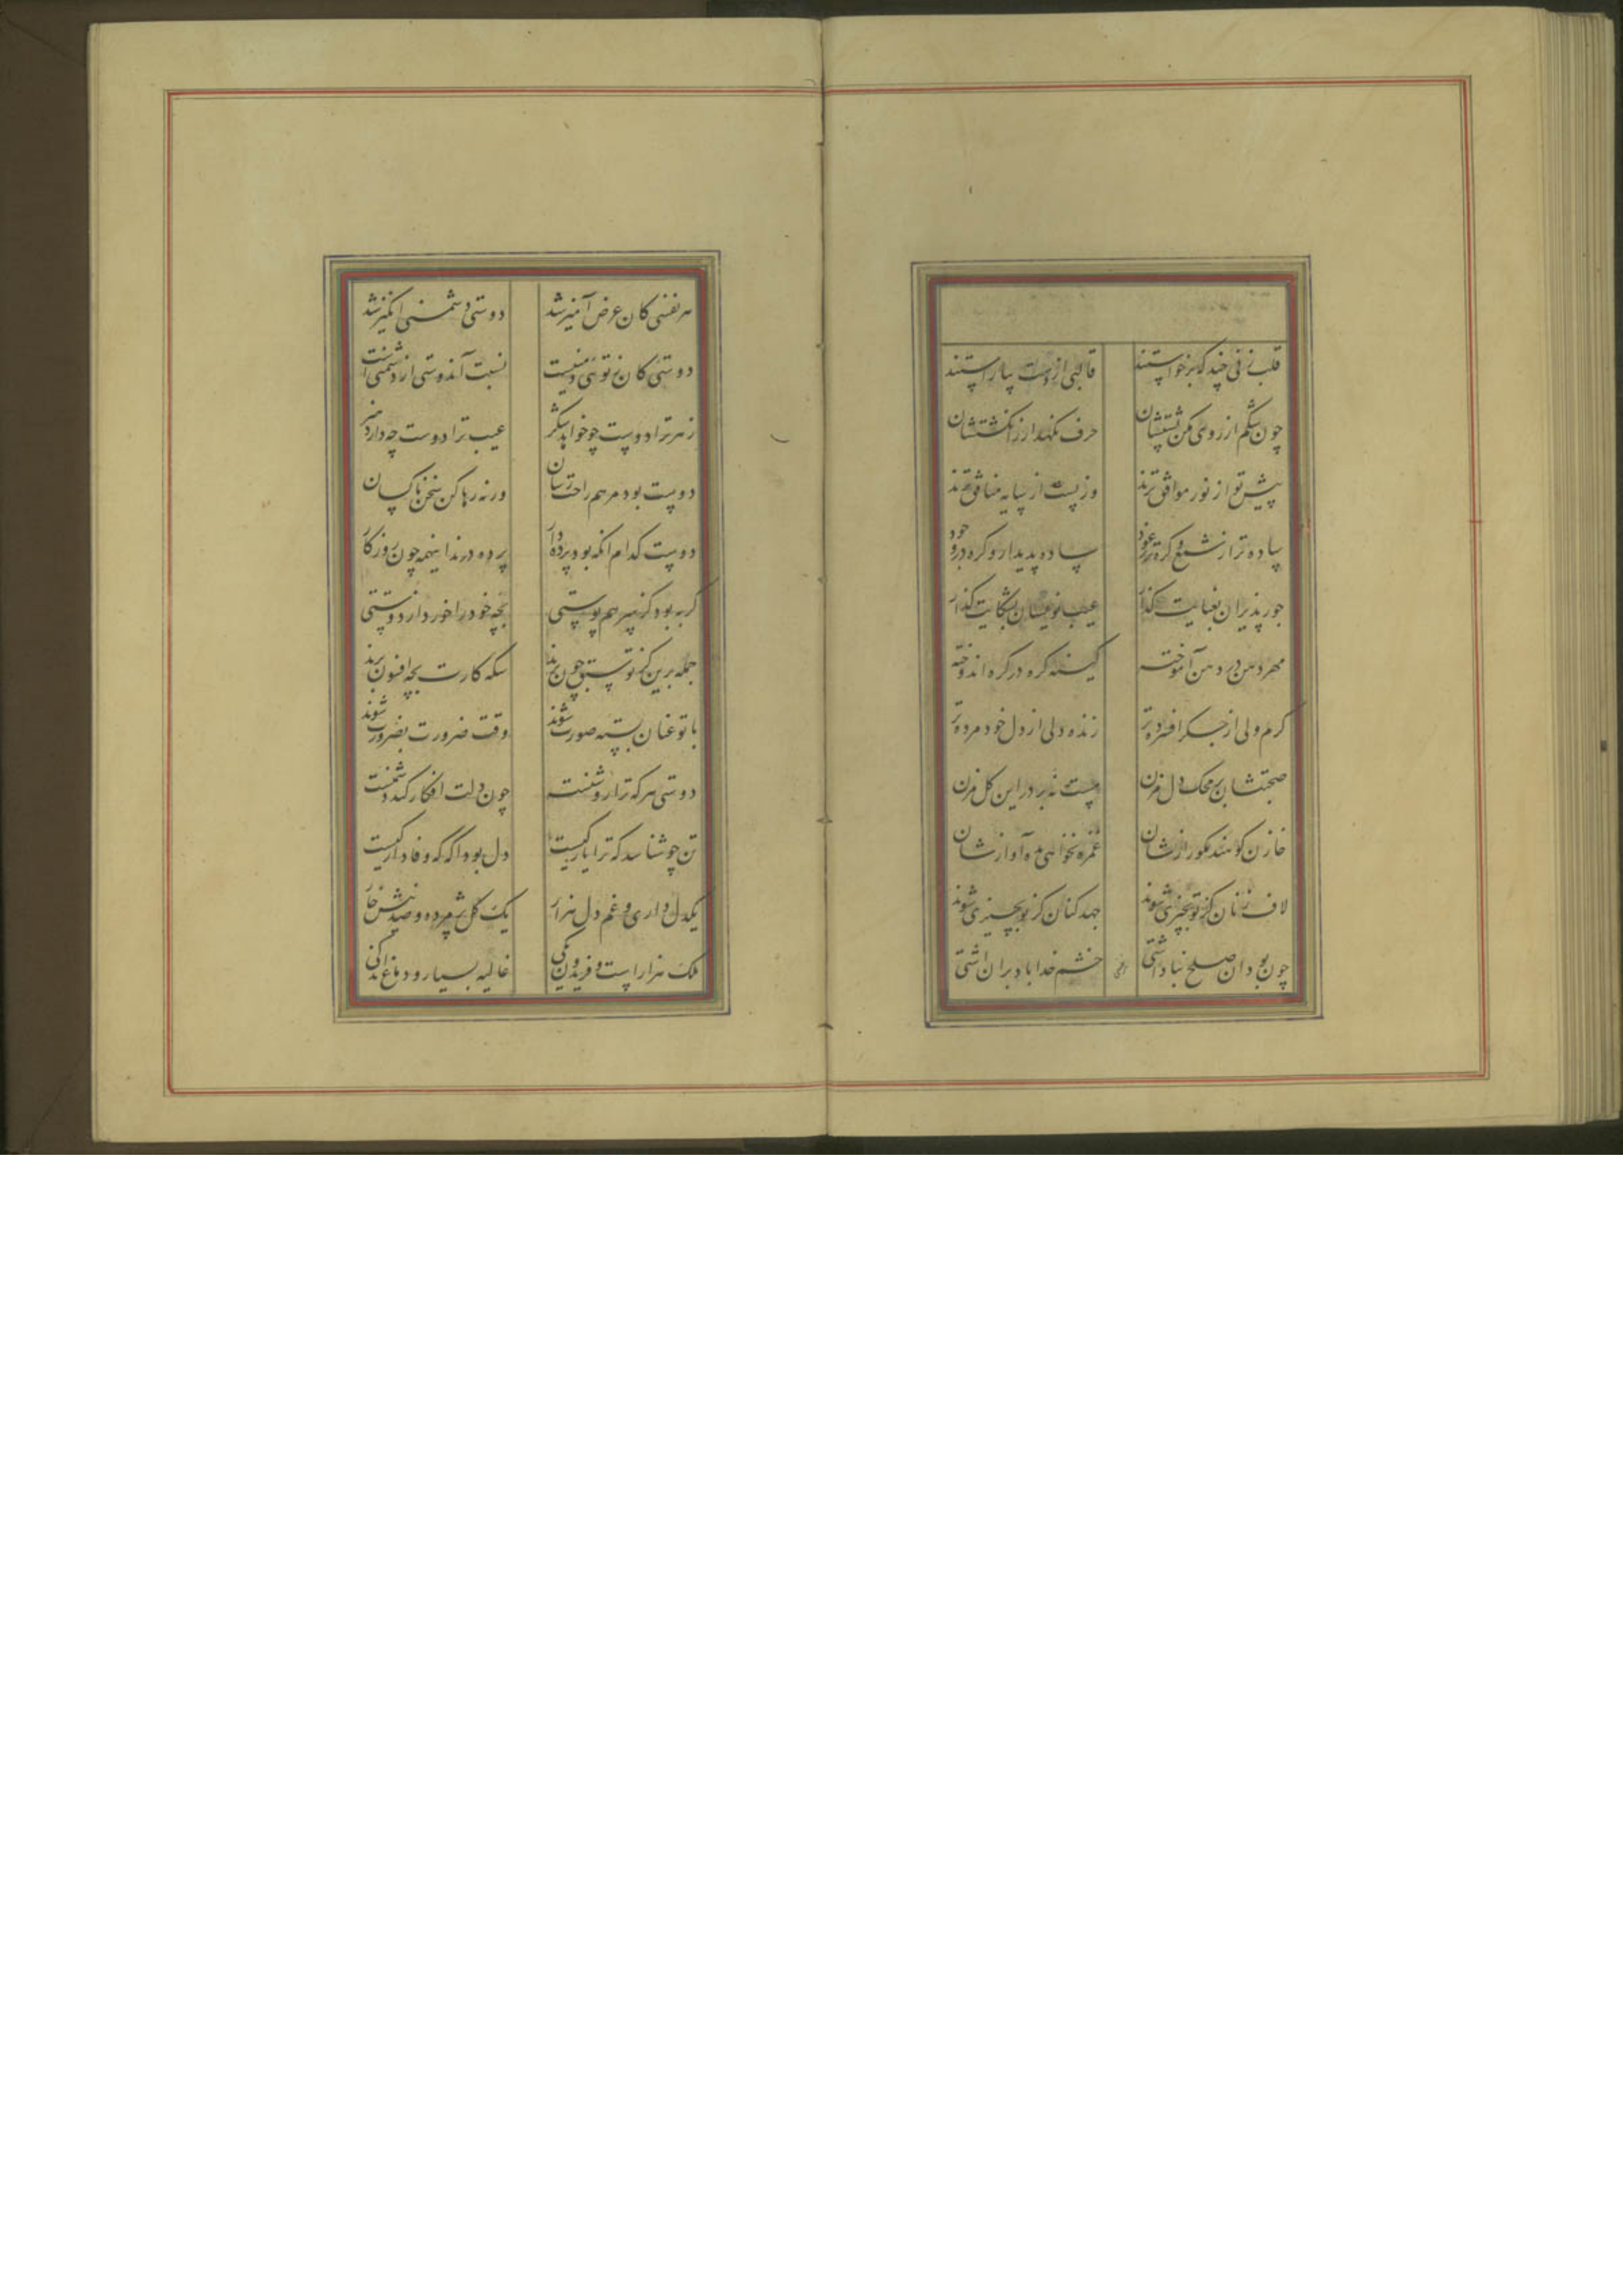 قلب زنی چند که برخواستند قالبی از دوست بیاراستند
چون شکم از روی بکن پشتشان حرف نگهدار ز انگشتشان
پیش تو از نور موافق ترند وز پست از سایه منافق ترند
ساده تر از شمع و گره تر ز عود ساده بدیدار و گره در وجود
جور پذیران بغنایت گذار عیب نویسان بشکایت گذار
مهر دهن در دهن آموخته کینه گره در گره اندوخته
گرم ولی از جگر افسرده تر زنده ولی از دل خود مرده تر
صحبتشان بر محک دل مزن مست نه‌ٔ در این گل مزن
خازن کوهند مگو رازشان غمزه نخواهی مده آوازشان
لاف زنان کز تو بچیزی شوند جهد کنان کز تو بچیزی شوند
چون بود آن صلح نباداشتی خشم خدا باد بران اشتی
هر نفسی کان غرض آمیز شد دوستی دشمنی انگیز شد
دوستی کان ز توئی و منیست نسبت آندوستی از دشمنی است
زهر ترا دوست چو خواند شکر عیب ترا دوست چه داند هنر
دوست بود مرهم راحت رسان ورنه رها کن سخن ناکسان
دوست کدام انکه بود پرده دار پرده درند اینهمه چون روزگار
گربه بود کز سر هم پوستی بچه خود را خورد از دوستی
جمله برین کز تو سبق چون برند سکه کارت بچه افسون برند
با تو عنان بسته صورت شوند وقت ضرورت بضرورت شوند
دوستی هر که ترا روشنست چون دلت افکار کند دشمنست
تن چو شناسد که ترا یار کیست دل بود آگه که وفادار کیست
یکدل داری و غم دل هزار یک گل پژمرده و صد نیش خار
ملک هزار است و فریدون یکی غالیه بسیار و دماغ اندکی